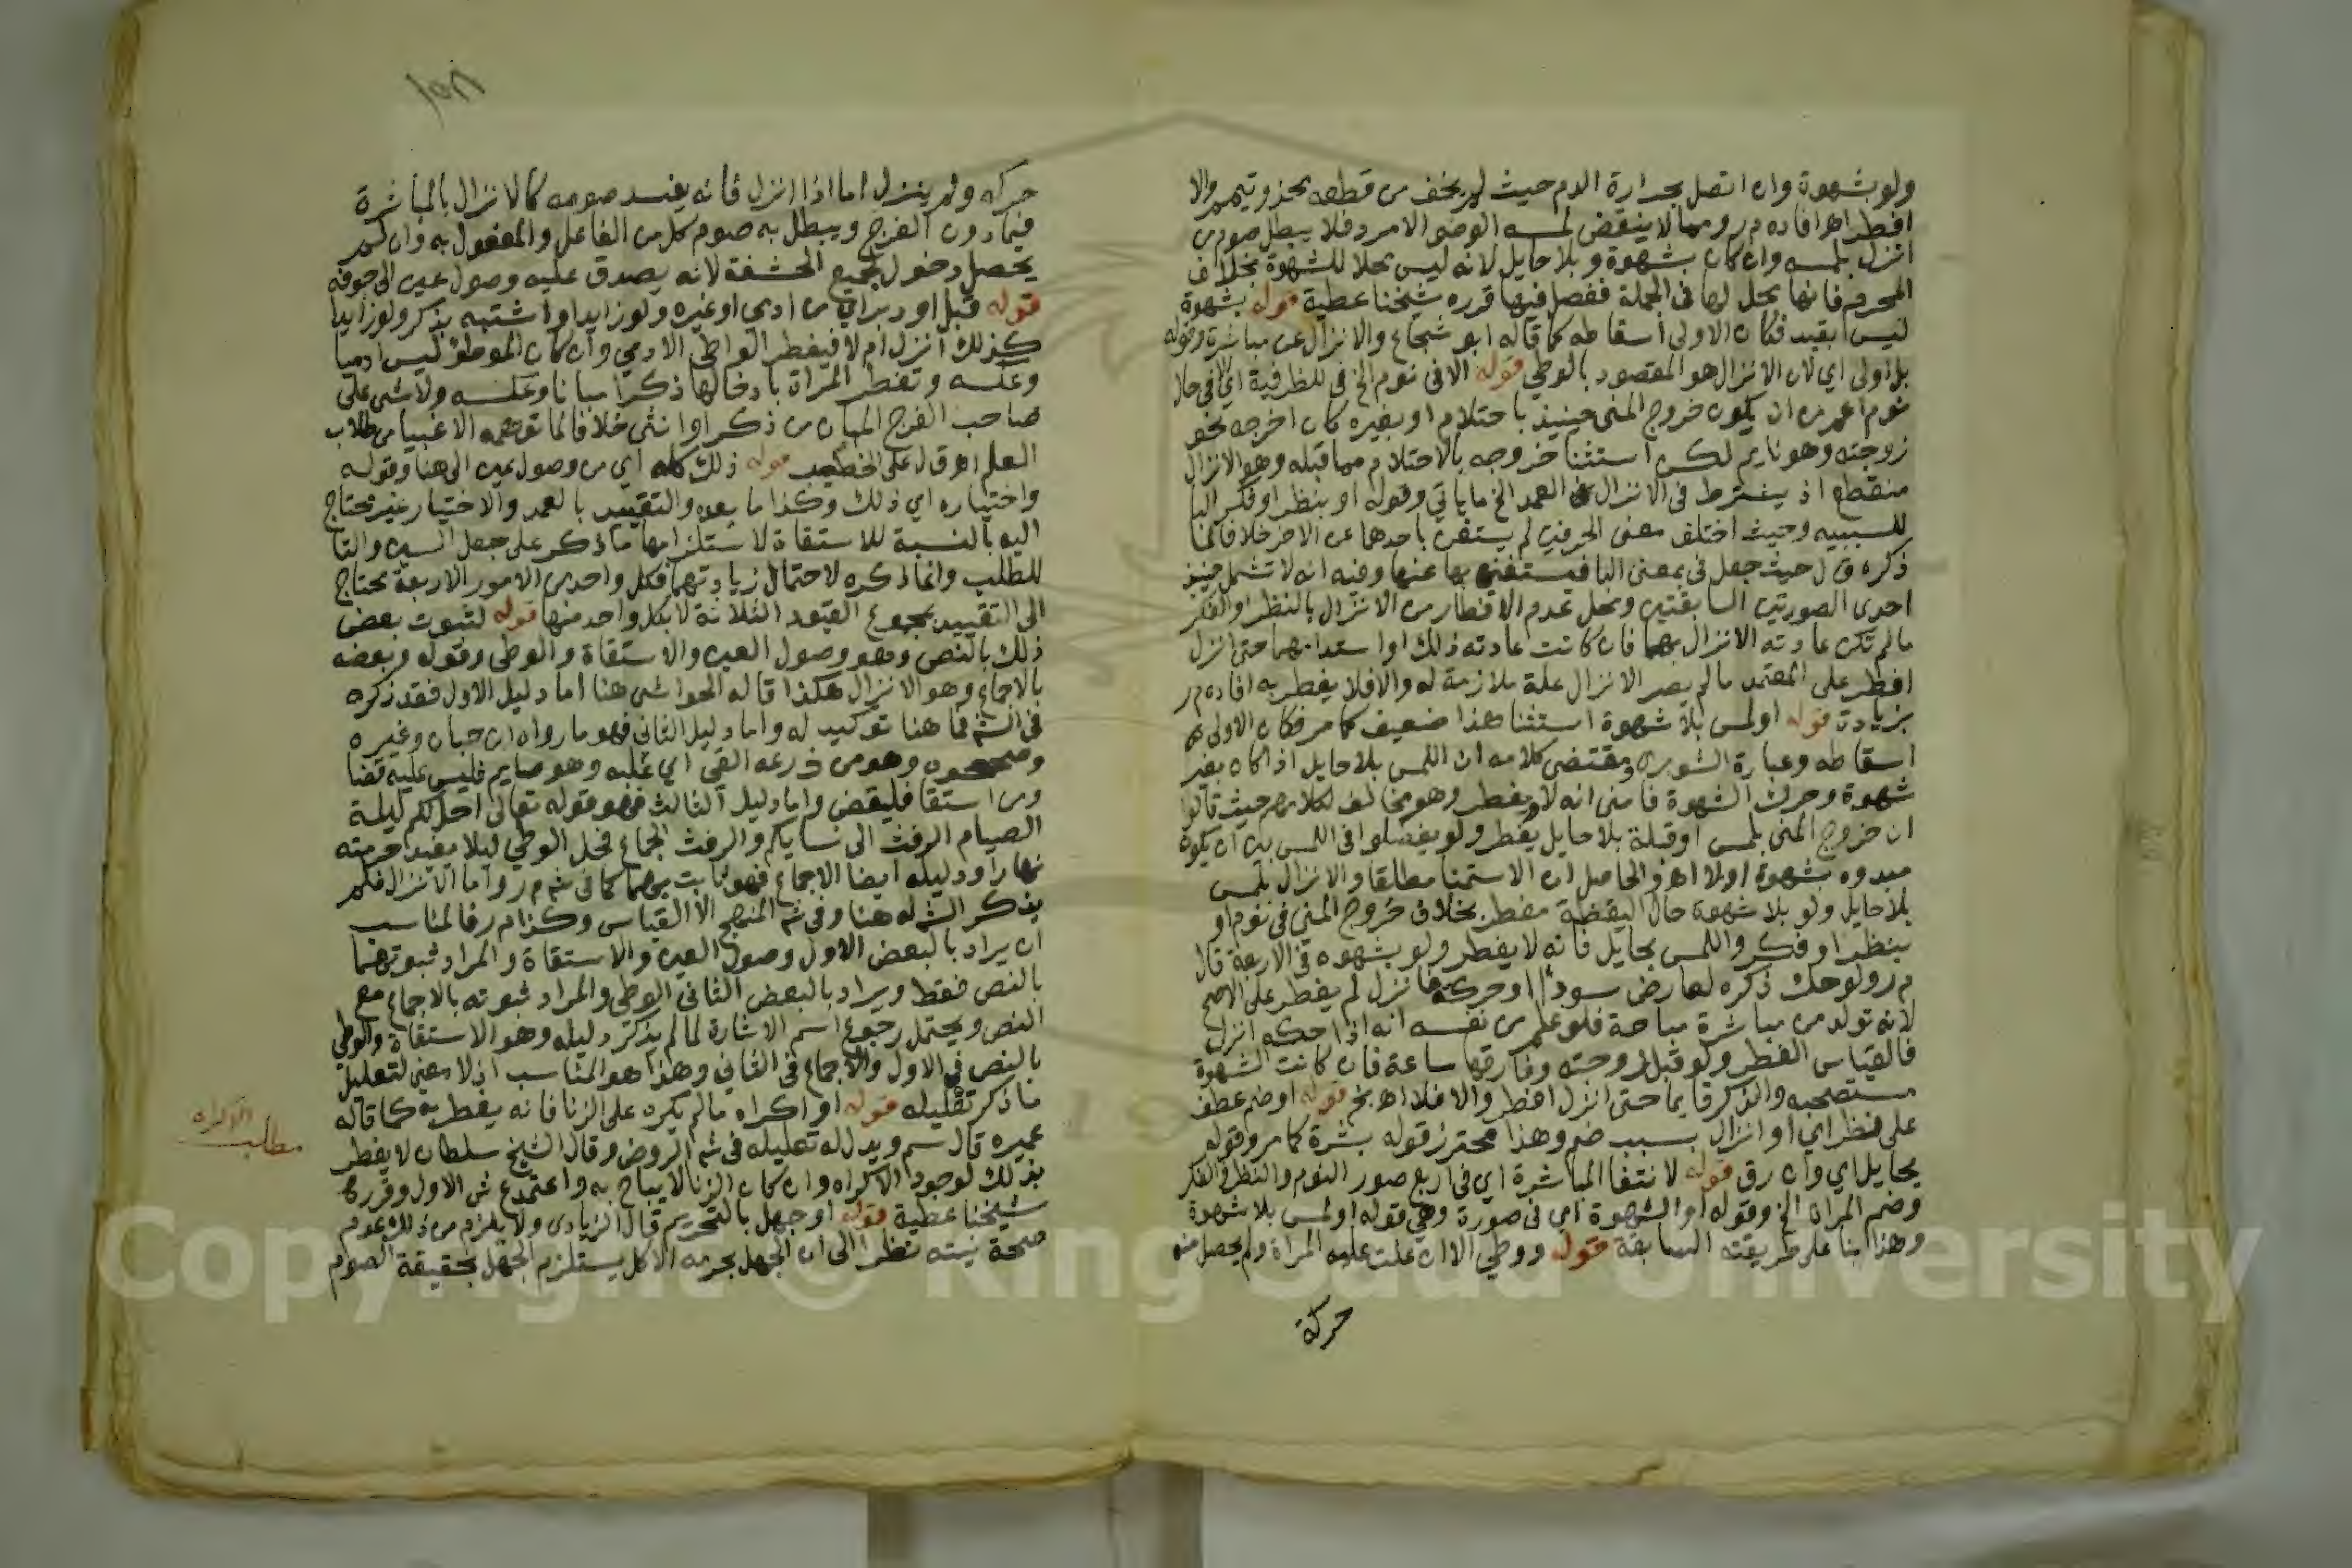 ولو بشهوة وان اتصل بحرارة الدم حيث لم يخف من قطعه محذور تيمم والا
افطر اهـ افاده م ر ومما لا ينقض لمسه الوضو الامرد فلا يبطل صوم من
انزل بلمسه وان كان بشهوة وبلا حايل لانه ليس محلا للشهوة بخلاف
المحرم فانها محل لها في الجملة ففصل فيها قرره شيخنا عطية قوله بشهوة
ليس بقيد فكان الاولى اسقاطه كما قاله ابو شجاع والانزال عن مباشرة وقوله
بل اولى اي لان الانزال هو المقصود بالوطي قوله الا في نوم الخ في للظرفية اي في حال
نوم اعم من ان يكون خروج المني حينيذ باحتلام او بغيره كان اخرجه نحو
زوجته وهو نايم لكن استثنا خروجه بالاحتلام مما قبله وهو الانزال
منقطع اذ يشترط في الانزال العمد الخ ما ياتي وقوله او بنظر او فكر البا
للسببيه وحيث اختلف معنى الحرفين لم يستغن باحدهما عن الاخر خلافا لما
ذكره ق ل حيث جعل في بمعنى البا فيستغني بها عنها وفيه انه لا تشمل حينيذ
احدى الصورتين السابقتين ومحل عدم الافطار من الانزال بالنظر او الفكر
ما لم تكن عادته الانزال بهما فان كانت عادته ذلك او استدامهما حتى انزل
افطر على المعتمد ما لم يصر الانزال علة ملازمة له والا فلا يفطر به افاده م ر
بزيادة قوله او لمس بلا شهوة استثنا هذا ضعيف كما مر فكان الاولى
اسقاطه وعبارة الشوبري ومقتضى كلامه ان اللمس بلا حايل اذا كان بغير
شهوة وحرك الشهوة فامنى انه لا يفطر وهو مخالف لكلامهم حيث قالوا
ان خروج المني بلمس او قبلة بلا حايل يفطر ولو يفصلوا في اللمس بين ان يكون
مبدوه بشهوة او لا اهـ والحاصل ان الاستمنا مطلقا والانزال بلمس
بلا حايل ولو بلا شهوة حال اليقظة مفطر بخلاف خروج المني في نوم او
بنظر او فكر واللمس بحايل فانه لا يفطر ولو بشهوه في الاربعة قال
م ر ولو حك ذكره لعارض سودا او حركة فانزل لم يفطر على الاصح
لانه تولد من مباشرة مباحة فلو علم من نفسه انه اذا حكه انزل
فالقياس الفطر ولو قبل زوجته وفارقها ساعة فان كانت الشهوة
مستصحبه والذكر قايما حتى انزل افطر والا فلا اهـ بخ قوله او ضم عطف
على نظر اي او انزال بسبب ضم وهذا محترز قوله بشرة كما مر وقوله
بحايل اي وان رق قوله لانتفا المباشرة اي في اربع صور النوم والنظر والفكر
وضم المراة الخ وقوله او الشهوة اي في صورة وهي قوله او لمس بلا شهوة
وهذا بنا على طريقته السابقة قوله ووطي الا ان علت عليه المراة ولم يحصل منه
حركة
حركه ولم ينزل اما اذا انزل فانه يفسد صومه كالانزال بالمباشرة
فيما دون الفرج ويبطل به صوم كل من الفاعل والمفعول به وان لم
يحصل دخول جميع الحشفة لانه يصدق عليه وصول عين الى جوفه
قوله قبل او دبر اي من ادمي او غيره ولو زايدا او اشتبه بذكر ولو زايدا
كذلك انزل ام لا فيفطر الواطي الادمي وان كان الموطؤ ليس ادميا
وعكسه وتفطر المراة بادخالها ذكرا مبانا وعكسه ولا شي على
صاحب الفرج المبان من ذكر او انثى خلافا لما توهمه الاغبيا من طلاب
العلم اهـ ق ل على الخطيب قوله ذلك كله اي من وصول عين الى هنا وقوله
واختياره اي ذلك وكذا ما بعده والتقييد بالعمد والاختيار غير محتاج
اليه بالنسبة للاستقاة لاستلزامها ما ذكر على جعل السين والتا
للطلب وانما ذكره لاحتمال زيادتهما فكل واحد من الامور الاربعة محتاج
الى التقييد بمجموع القيود الثلاثة لا بكل واحد منها قوله لثبوت بعض
ذلك بالنص وهو وصول العين والاستقاة والوطي وقوله وبعضه
بالاجماع وهو الانزال هكذا قاله الحواشي هنا اما دليل الاول فقد ذكره
في الشم فما هنا توكيد له واما دليل الثاني فهو ما رواه ابن حبان وغيره
وصححوه وهو من ذرعه القي اي غلبه وهو صايم فليس عليه قضا
ومن استقا فليقض واما دليل الثالث فهو قوله تعالى احل لكم ليلة
الصيام الرفث الى نسايكم والرفث الجماع فحل الوطي ليلا يفيد حرمته
نهارا ودليله ايضا الاجماع فهو ثابت بهما كما في شم م ر واما الانزال فلم
يذكر الشم له هنا وفي شم المنهج الا القياس وكذا م ر فالمناسب
ان يراد بالبعض الاول وصول العين والاستقاة والمراد ثبوتهما
بالنص فقط ويراد بالبعض الثاني الوطي والمراد ثبوته بالاجماع مع
النص ويحتمل رجوع اسم الاشارة لما لم يذكر دليله وهو الاستقاة والوطي
بالنص في الاول والاجماع في الثاني وهذا هو المناسب اذ لا معنى لتعليل
ما ذكر تعليله قوله او اكراه ما لم يكره على الزنا فانه يفطر به كما قاله
عميره قال سم ويدل له تعليله في شم الروض وقال الشيخ سلطان لا يفطر
بذلك لوجود الاكراه وان كان الزنا لا يباح به واعتمد ع ش الاول وقرره
شيخنا عطية قوله او جهل بالتحريم قال الزيادي ولا يلزم من ذلك عدم
صحة نيته نظرا الى ان الجهل بحرمه الاكل يستلزم الجهل بحقيقة الصوم
مطلب الاكراه
Copyright © King Saud University